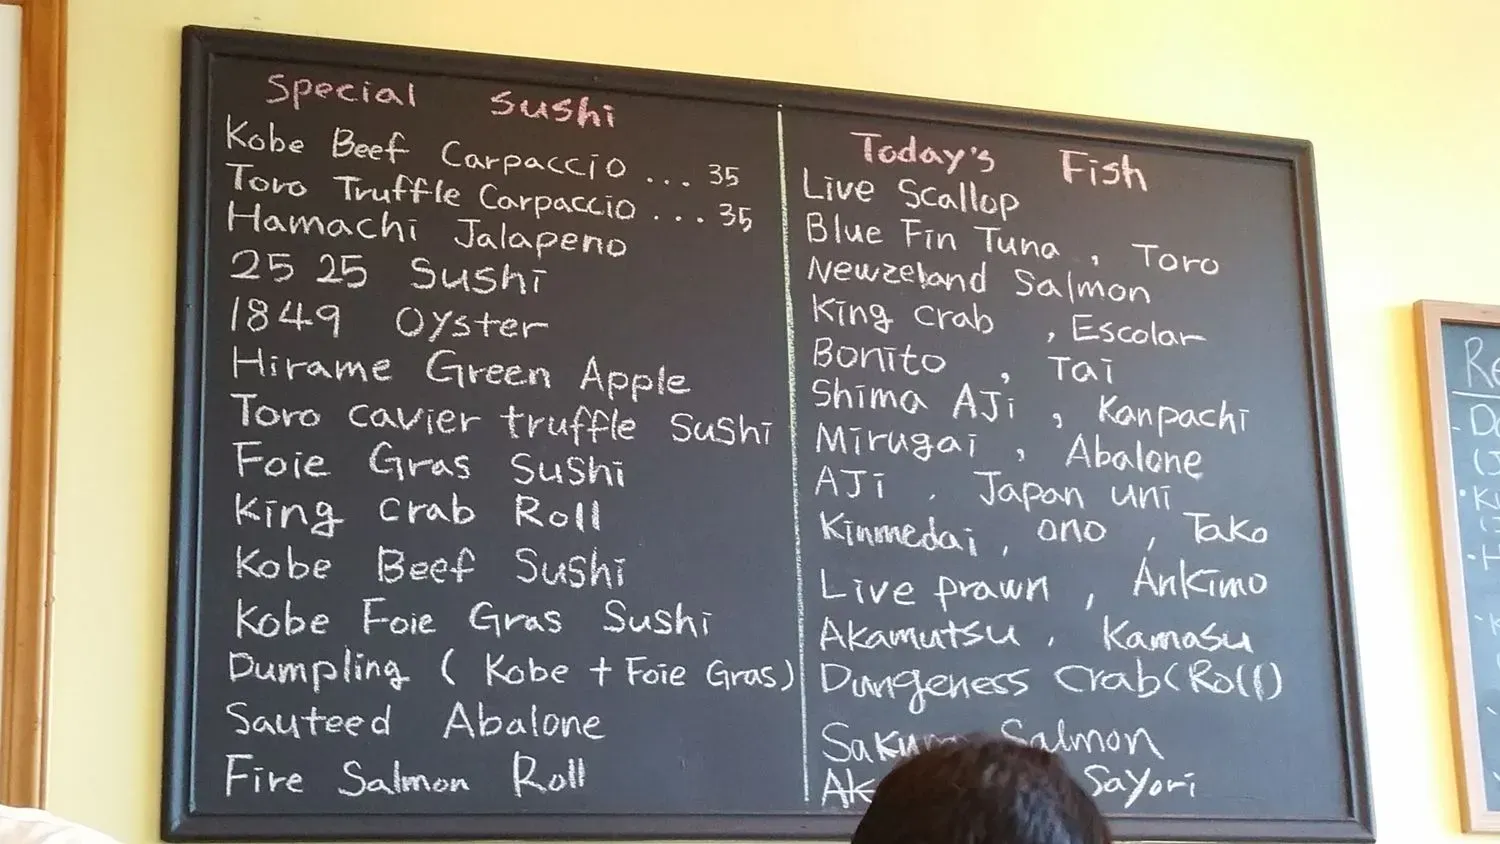 Special Sushi
Kobe Beef Carpaccio ... 35
Toro Truffle Carpaccio ... 35
Hamachi Jalapeno
25 25 Sushi
1849 Oyster
Hirame Green Apple
Toro cavier truffle Sushi
Foie Gras Sushi
King Crab Roll
Kobe Beef Sushi
Kobe Foie Gras Sushi
Dumpling ( Kobe + Foie Gras)
Sauteed Abalone
Fire Salmon Roll
Today's Fish
Live Scallop
Blue Fin Tuna , Toro
Newzeland Salmon
King crab , Escolar
Bonito , Tai
Shima AJi , Kanpachi
Mirugai , Abalone
AJi , Japan uni
Kinmedai , ono , Tako
Live prawn , Ankimo
Akamutsu , Kamasu
Dungeness Crab (Roll)
Salmon
Sayori